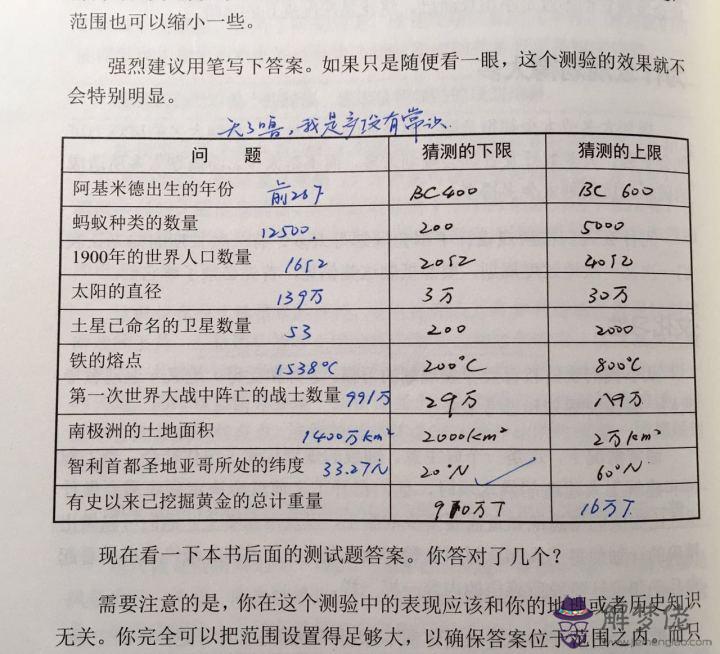 范围也可以缩小一些。
强烈建议用笔写下答案。如果只是随便看一眼，这个测验的效果就不
会特别明显。
天了噜，我是多没有常识.
问 题 猜测的下限 猜测的上限
阿基米德出生的年份 前287 BC400 BC 600
蚂蚁种类的数量 12500. 200 5000
1900年的世界人口数量 16亿 20亿 40亿
太阳的直径 139万 3万 30万
土星已命名的卫星数量 53 200 2000
铁的熔点 1538°C 200°C 800°C
第一次世界大战中阵亡的战士数量 991万 29万 万
南极洲的土地面积 1400万km² 2000km² 2万km²
智利首都圣地亚哥所处的纬度 33.27 20°N 60°N
有史以来已挖掘黄金的总计重量 万T 16万T.
现在看一下本书后面的测试题答案。你答对了几个？
需要注意的是，你在这个测验中的表现应该和你的地理或者历史知识
无关。你完全可以把范围设置得足够大，以确保答案位于范围之内。而只
解梦佬